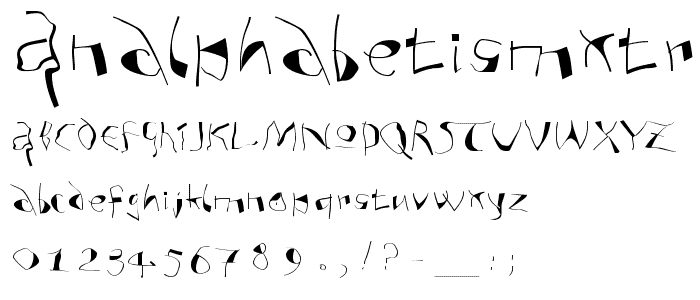 Analphabetismxtr
AbCDEFGhIJKLMNOPQRSTUVWXYZ
abcdefghijklmnopqrstuvwxyz
0123456789.,!?-_:;